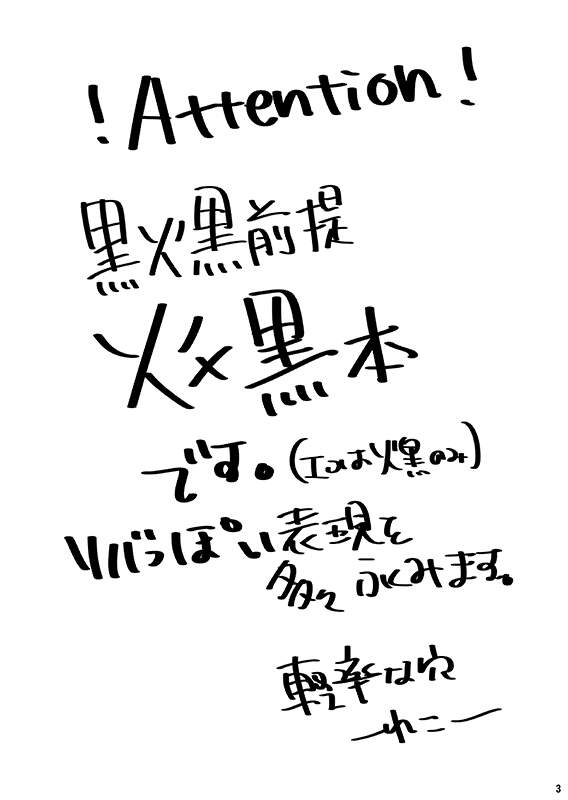 ！Attention！
黒火黒前提
火×黒本
です。(エロは火黒のみ)
リバっぽい表現を
多々ふくみます。
軽率な穴
ーれこー
3